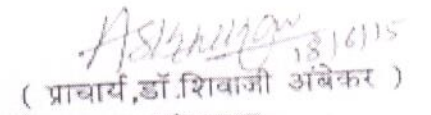 18/6/15
( प्राचार्य,डॉ.शिवाजी अंबेकर )